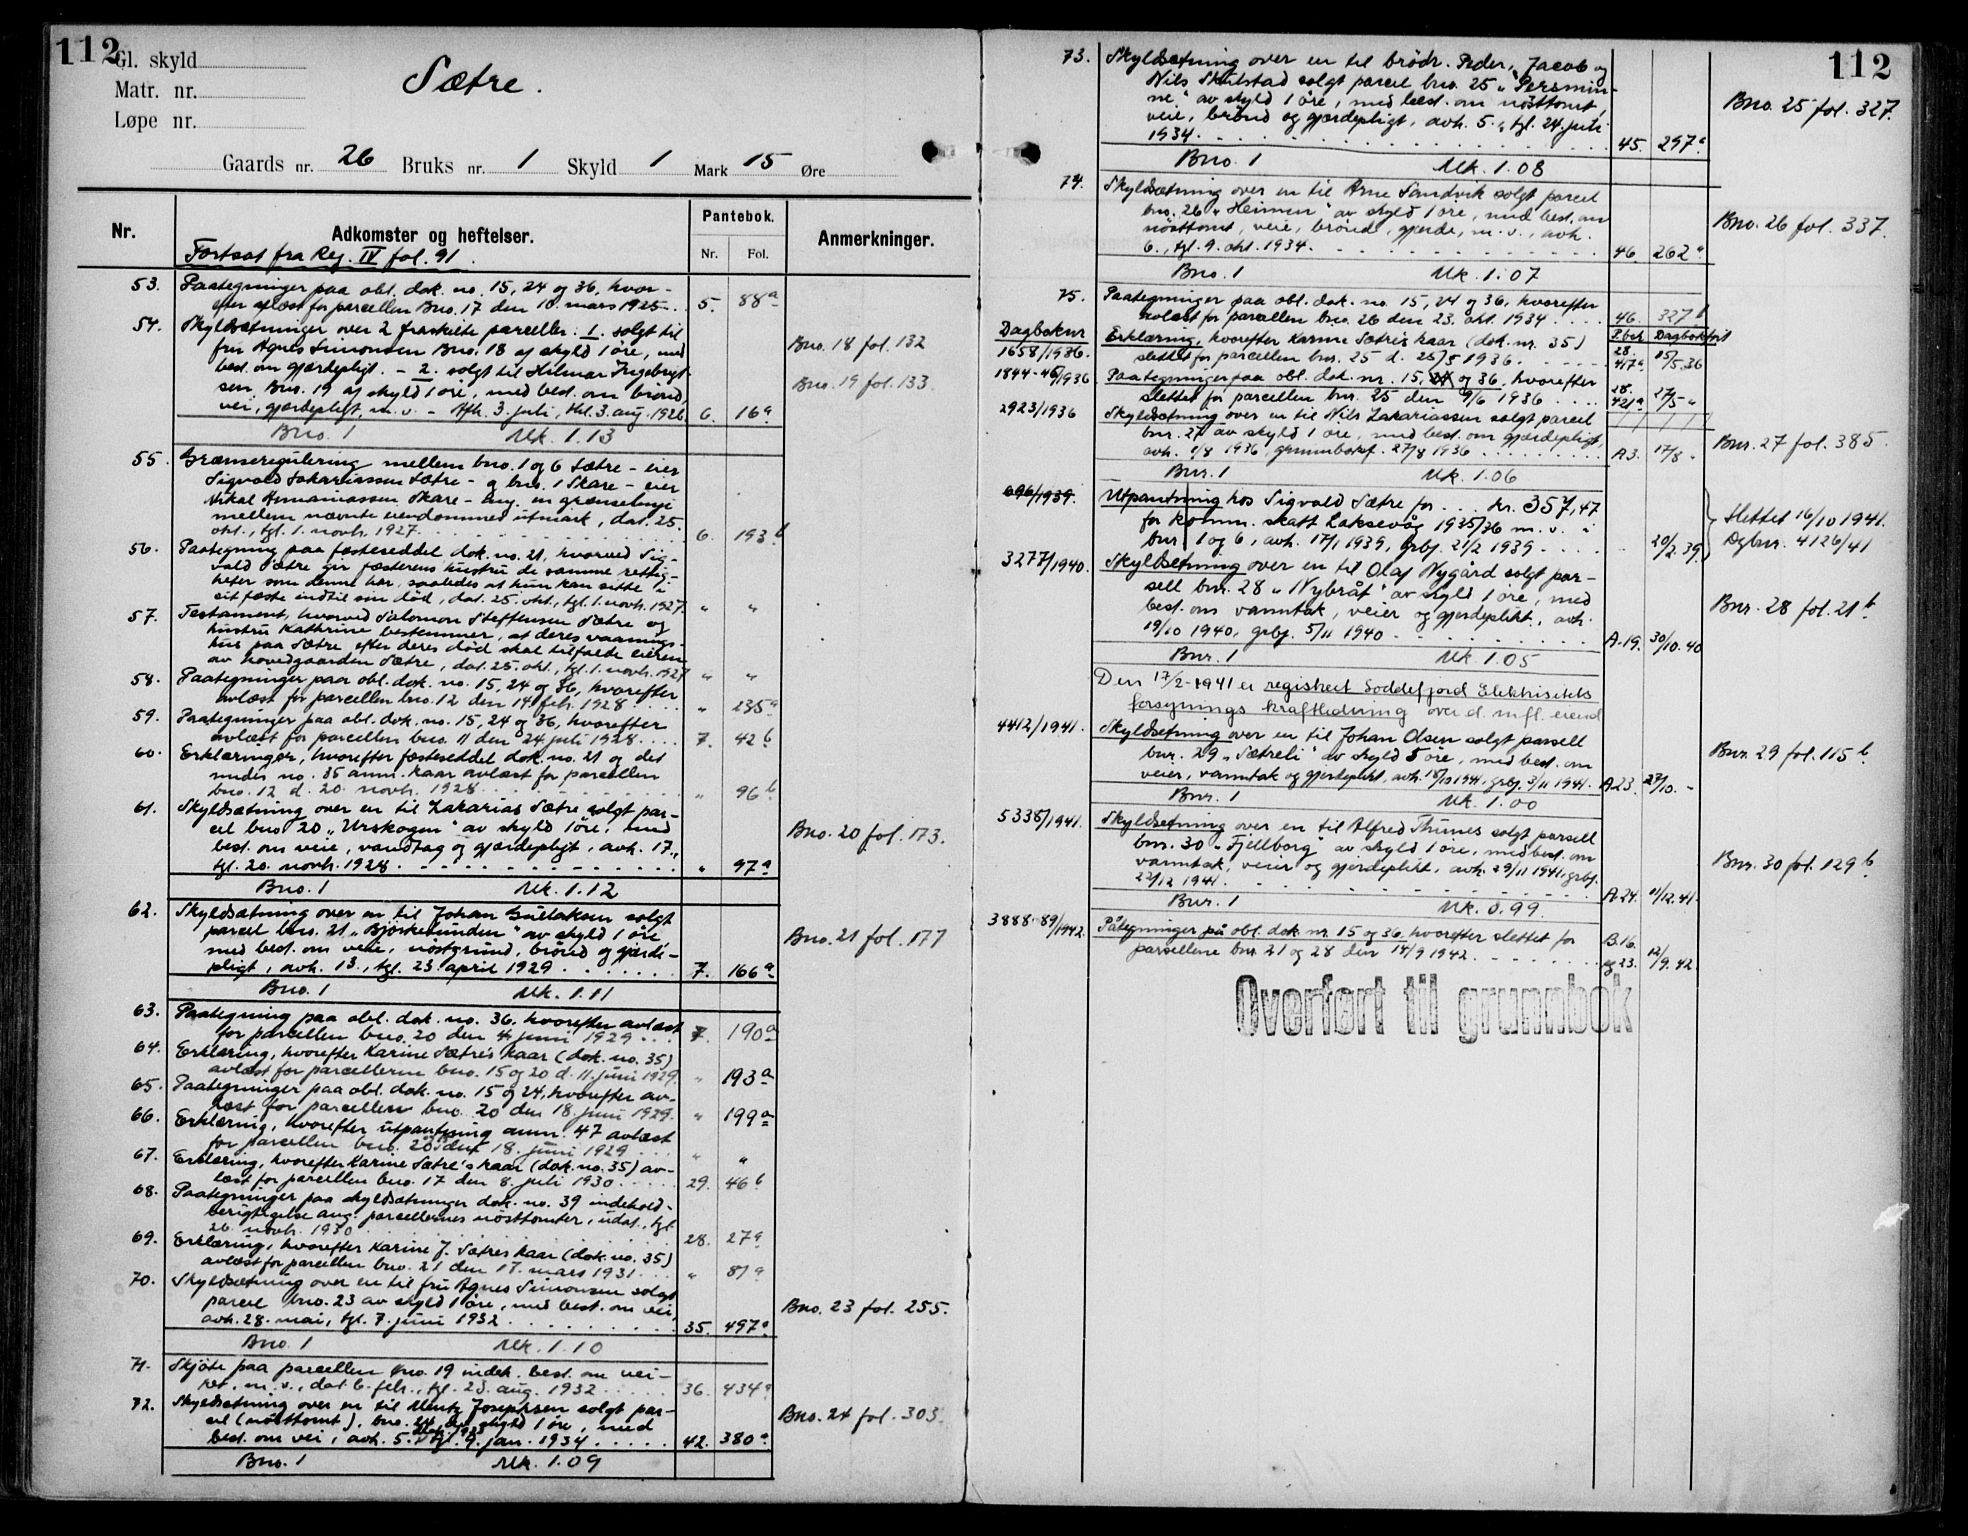 112
Gl. skyld
Matr. nr.
Løpe nr.
Sætre.
Gaards nr. 26 Bruks nr. 1 Skyld 1 Mark 15 Øre
Nr. Adkomster og heftelser. Pantebok. Nr. Fol. Anmerkninger.
Fortsat fra Reg. IV fol. 91.
53. Paategninger paa obl. dok. no. 15, 24 og 36, hvor-
efter avløst for parcellen Bno. 17 den 10 mars 1925. 5. 88a
54. Skyldsætninger over 2 fraskilte parceller: 1. solgt til
fru Agnes Simonsen Bno. 18 af skyld 1 øre, med Bno. 18 fol. 132
best. om gjærdepligt. – 2. solgt til Hilmar Ingebrigt-
sen Bno. 19 af skyld 1 øre, med best. om brønd, Bno. 19 fol. 133.
vei, gjærdepligt, m. v. – Afh. 3. juli, thl. 3. aug. 1926. 6. 16a
Bno. 1 Mk. 1.13
55. Grænseregulering mellem bno. 1 og 6 Sætre – eier
Sigvald Sakariassen Sætre – og bno. 1 Skare – eier
Nikal Hemaniassen Skare – ang. en grænselinje
mellem nævnte eiendommes utmark, dat. 25.
okt., tgl. 1. novb. 1927. 6. 193b
56. Paategning paa fæsteseddel dok. no. 21, hvorved Sig-
vald Sætre gir fæsterens hustru de samme rettig-
heter som denne har, saaledes at hun kan sitte i
sit fæste indtil sin død, dat. 25. okt., tgl. 1. novb. 1927. " "
57. Testament, hvorved Salomon Steffensen Sætre og
hustru Kathrine bestemmer, at deres vaanings-
hus paa Sætre efter deres død skal tilfalde eieren
av hovedgaarden Sætre, dat. 25. okt., tgl. 1. novb. 1927 " "
58. Paategninger paa obl. dok. no. 15, 24 og 36, hvorefter
avløst for parcellen bno. 12 den 14 feb. 1928 " 235a
59. Paategninger paa obl. dok. no. 15, 24 og 36, hvorefter
avløst for parcellen bno. 11 den 24 juli 1928. 7. 42b
60. Erklæringer, hvorefter fæsteseddel dok. no. 21 og det
under no. 35 anm. kaar avløst for parcellen
bno. 12 d. 20. novb. 1928 " 96b
61. Skyldsætning over en til Zakarias Sætre solgt par-
cel bno 20 „Urskogen" av skyld 1 øre, med Bno. 20 fol. 173.
best. om veie, vandtag og gjærdepligt, avh. 17.,
tgl. 20. novb. 1928 " 97a
Bno. 1 Mk. 1.12
62. Skyldsætning over en til Johan Gullaksen solgt
parcel bno. 21 „Bjørkelunden" av skyld 1 øre Bno. 21 fol. 177
med best. om veie, nøstgrund, brønd og gjærde-
pligt, avh. 13., tgl. 23. april 1929 7. 166a
Bno. 1 Mk. 1.11
63. Paategning paa obl. dok. no. 36, hvorefter avløst
for parcellen bno. 20 den 4 juni 1929 7. 190a
64. Erklæring, hvorefter Karine Sætre's kaar (dok. no. 35)
avløst for parcellerne bno. 15 og 20 d. 11. juni 1929. " 193a
65. Paategninger paa obl. dok. no. 15 og 24, hvorefter av-
løst for parcellen bno. 20 den 18. juni 1929. " 199a
66. Erklæring, hvorefter utpantning anm. 47 avløst
for parcellen bno. 20 den 18. juni 1929 " "
67. Erklæring, hvorefter Karine Sætre's kaar (dok. no. 35) av-
løst for parcellen bno. 17 den 8. juli 1930 29. 46b
68. Paategninger paa skyldsætninger dok. no. 39 indehold.
berigtigelse ang. parcellernes nøsttomter, udat., tgl.
26. novb. 1930 28. 27a
69. Erklæring, hvorefter Karine J. Sætres kaar (dok. no. 35)
avløst for parcellen bno. 21 den 17. mars 1931 " 87a
70. Skyldsætning over en til fru Agnes Simonsen solgt
parcel bno. 23 av skyld 1 øre, med best. om vei, Bno. 23 fol. 255.
avh. 28. mai, tgl. 7. juni 1932 35. 497a
Bno. 1 Mk. 1.10
71. Skjøte paa parcellen bno. 19 indeh. best. om vei-
ret, m. v., dat. 6. feb., tgl. 23. aug. 1932 36. 434a
72. Skyldsætning over en til Mentz Josephsen solgt par-
cel (nøsttomt), bno. 24 av skyld 1 øre, med Bno. 24 fol. 303.
best. om vei, avh. 5. tgl. 9. jan. 1934 42. 380a
Bno. 1 Mk. 1.09
112
73. Skyldsætning over en til brødr. Peder, Jacob og
Nils Skulstad solgt parcel bno. 25 „Persmin-
ne" av skyld 1 øre, med best. om nøsttomt, Bno. 25 fol. 327.
veie, brønd og gjærdepligt, avh. 5., tgl. 24. juli
1934. 45. 297a
Bno. 1 Mk. 1.08
74. Skyldsætning over en til Arne Sandvik solgt parcel
bno. 26 „Heimen" av skyld 1 øre, med best. om Bno. 26 fol. 337.
nøsttomt, veie, brønd, gjerde, m. v., avh.
6., tgl. 9. okt. 1934. 46. 262a
Bno. 1 Mk. 1.07
75. Paategninger paa obl. dok. no. 15, 24 og 36, hvorefter
avløst for parcellen bno. 26 den 23. okt. 1934 46. 327b
Dagboknr P.bok Dagbokført
1658/1936. Erklæring, hvorefter Karine Sætre's kaar (dok. nr. 35)
slettet for parcellen bnr. 25 d. 25/5 1936 28. 417a 15/5.36
1844-46/1936 Paategninger paa obl. dok. nr. 15, 24 og 36, hvorefter
slettet for parcellen bnr. 25 den 9/6 1936 28. 421a 27/5 "
2923/1936 Skyldsætning over en til Nils Zakariassen solgt parcel
bnr. 27 av skyld 1 øre, med best. om gjærdepligt, Bnr. 27 fol. 385.
avh. 1/8 1936, grunnbokf. 27/8 1936 A3. 17/8 -
Bnr. 1 Mk. 1.06
696/1939. Utpantning hos Sigvald Sætre for kr. 357,47
for komm. skatt Laksevåg 1935/36 m. v. i Slettet 16/10 1941.
bnr. 1 og 6, avh. 17/1 1939, grbf. 21/2 1939 20/2.39. Dgbnr. 4126/41
3277/1940. Skyldsetning over en til Olaf Nygård solgt par-
sell bnr. 28 „Nybråt" av skyld 1 øre, med Bnr. 28 fol. 21b
best. om vanntak, veier og gjerdeplikt, avh.
19/10 1940, grbf. 5/11 1940 A.19. 30/10.40
Bnr. 1 Mk. 1.05
Den 17/2-1941 er registrert Soddefjord Elektrisitets
forsynings kraftledning over d. m.fl. eiend
4412/1941. Skyldsetning over en til Johan Olsen solgt parsell
bnr. 29 „Sætreli" av skyld 5 øre, med best. om Bnr. 29 fol. 115b
veier, vanntak og gjerdeplikt, avh. 18/10 1941, grbf. 3/11 1941. A23. 27/10. -
Bnr. 1 Mk. 1.00
5338/1941. Skyldsetning over en til Alfred Thunes solgt parsell
bnr. 30 „Fjellborg" av skyld 1 øre, med best. om Bnr. 30 fol. 129b
vanntak, veier og gjerdeplikt, avh. 29/11 1941, grbf.
22/12 1941. A.24. 11/12.41.
Bnr. 1 Mk. 0.99.
3888-89/1942. Påtegninger på obl. dok. nr. 15 og 36, hvorefter slettet for B.16.
parsellene bnr 21 og 28 den 14/9 1942. og 23. 12/9.42.
Overført til grunnbok